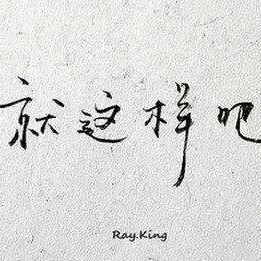 就这样吧
Ray.King